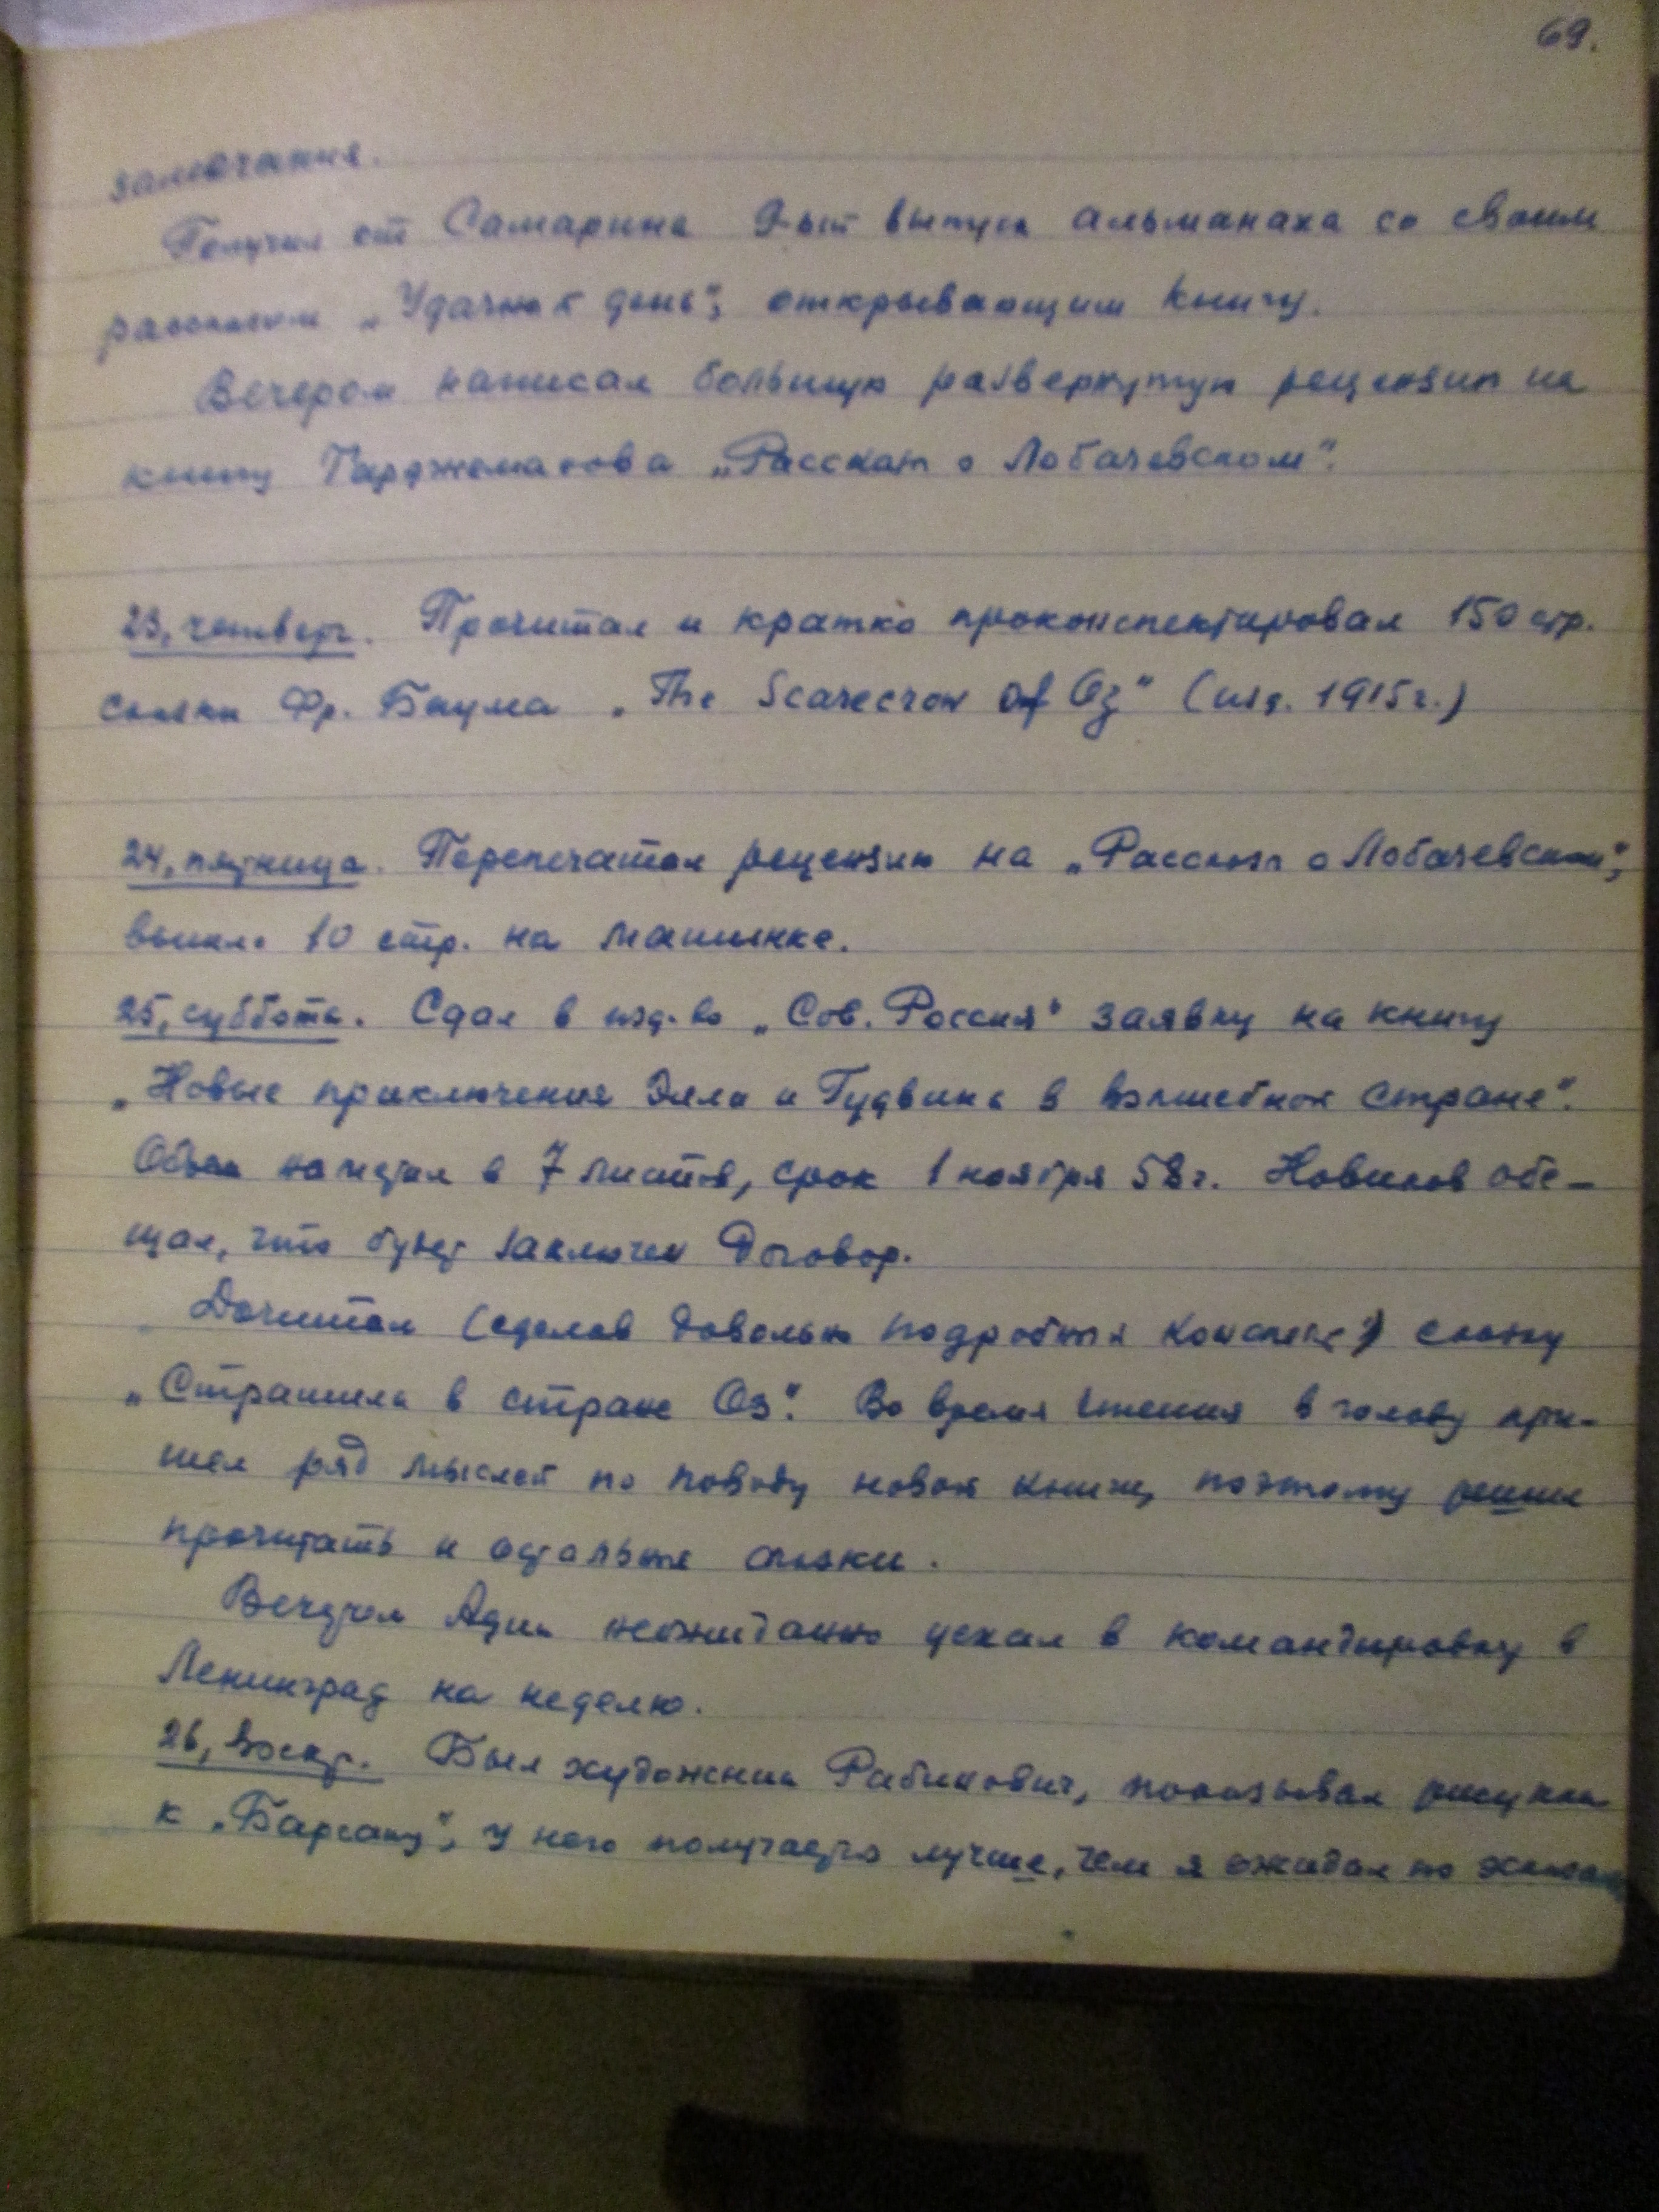 69.
замечания.
Получил от Самарина 9-ый выпуск альманаха со своим
рассказом „Удачный день", открывающим книгу.
Вечером написал большую развернутую рецензию на
книгу Тарджеманова „Рассказы о Лобачевском".
23, четверг. Прочитал и кратко проконспектировал 150 стр.
сказки Фр. Баума „The Scarecrow of Oz" (изд. 1915 г.)
24, пятница. Перепечатал рецензию на „Рассказы о Лобачевском",
вышло 10 стр. на машинке.
25, суббота. Сдал в изд-во „Сов. Россия" заявку на книгу
„Новые приключения Элли и Гудвина в волшебной стране".
Объем наметил в 7 листов, срок 1 ноября 58 г. Новиков обе-
щал, что будет заключен договор.
Дочитал (сделав довольно подробный конспект) сказку
„Страшила в стране Оз". Во время чтения в голову при-
шел ряд мыслей по поводу новой книги, поэтому решил
прочитать и остальные сказки.
Вечером Адик неожиданно уехал в командировку в
Ленинград на неделю.
26, воскр. Был художник Рабинович, показывал рисунки
к „Барсаку", у него получается лучше, чем я ожидал по